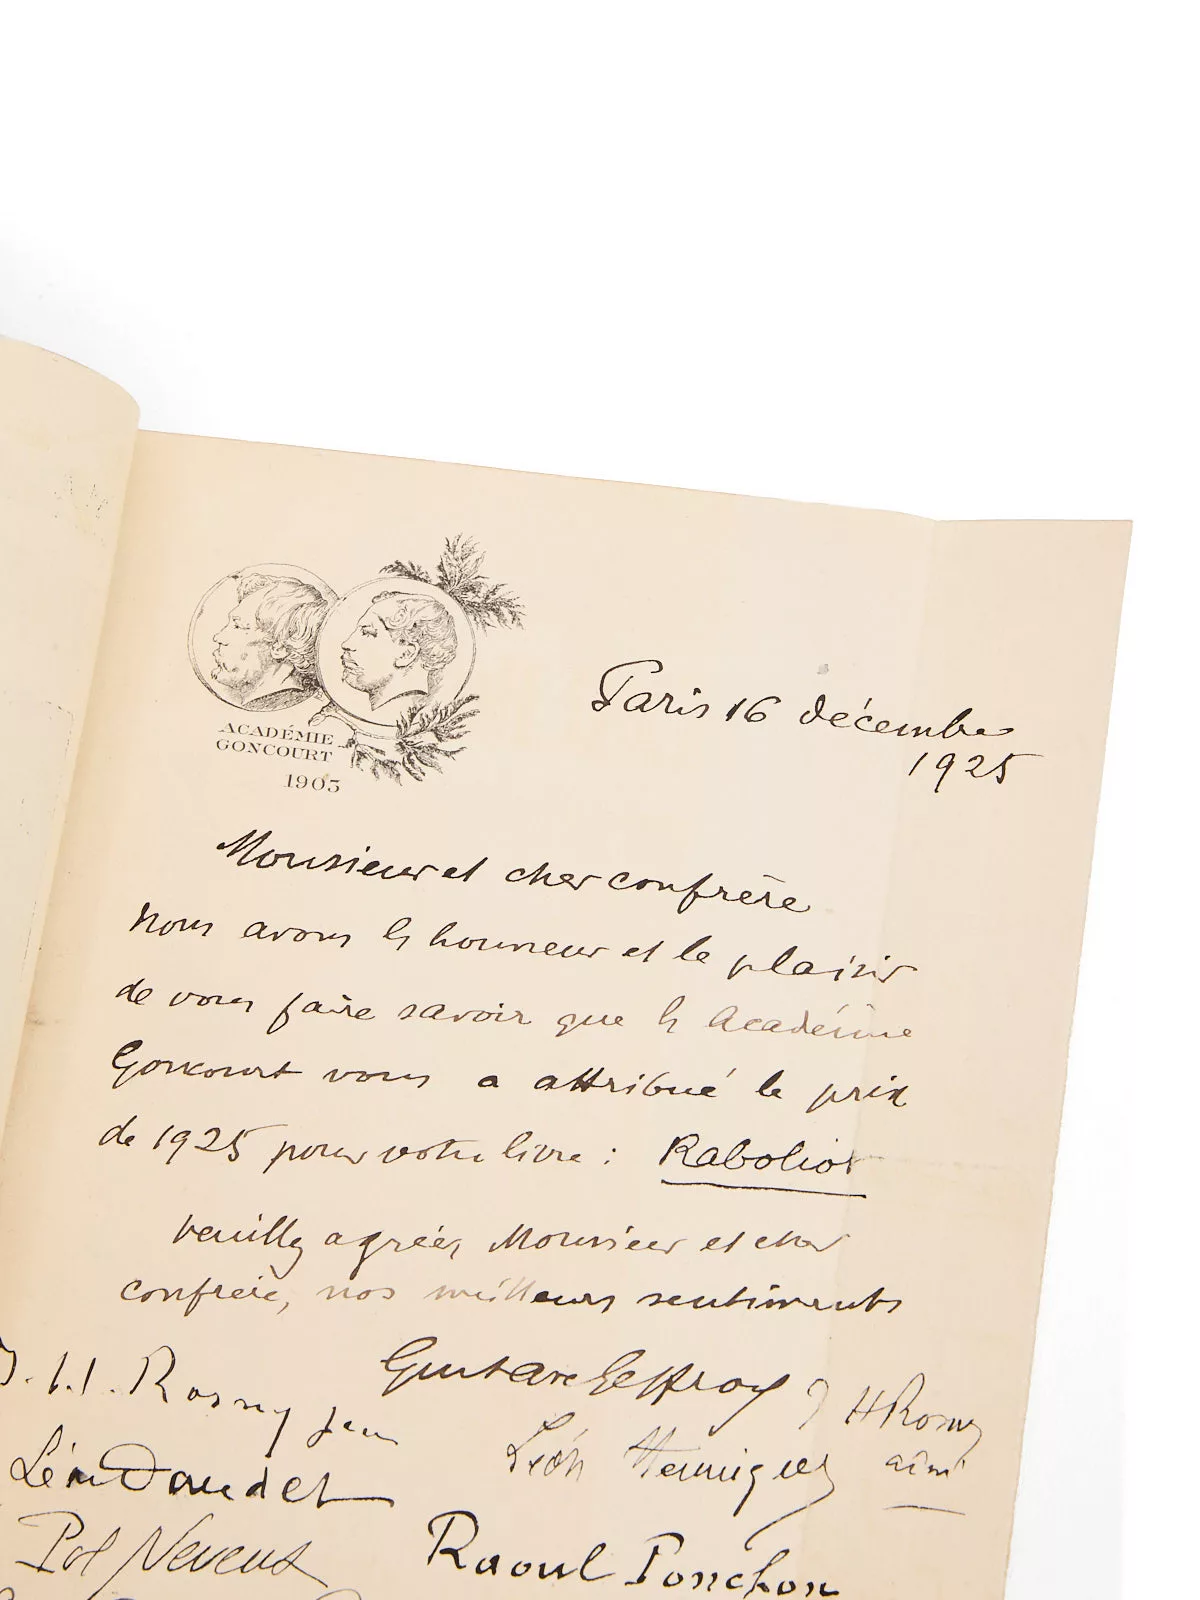 ACADÉMIE
GONCOURT
1903
Paris 16 décembre
1925
Monsieur et cher confrère
Nous avons le honneur et le plaisir
de vous faire savoir que le Académie
Goncourt vous a attribué le prix
de 1925 pour votre livre : Raboliot
veuillez agréer, Monsieur et cher
confrère, nos meilleurs sentiments
Gustave Geffroy
J. H. Rosny jeune
J H Rosny
aîné
Léon Hennique
Léon Daudet
Pol Neveux
Raoul Ponchon